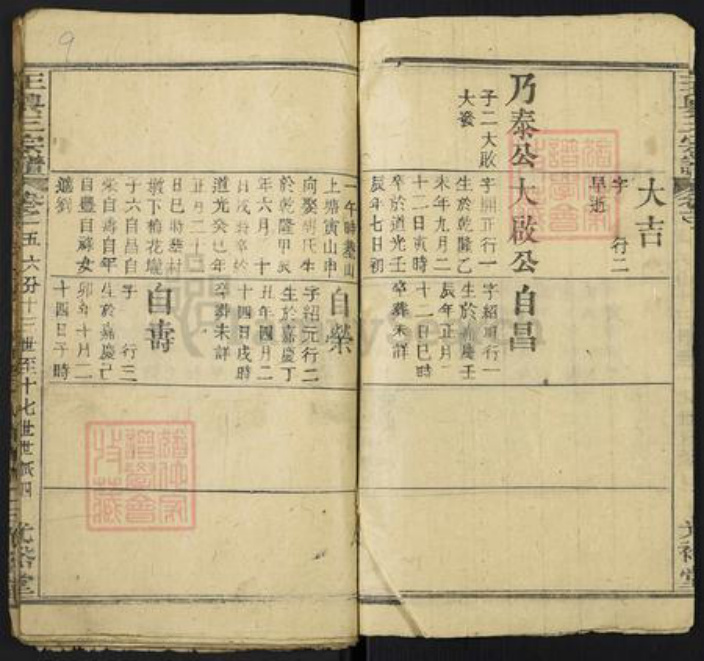 大吉
字 行二
早逝
乃泰公
子二大啟
大發
大啟公
字開正行一
生於乾隆乙
未年九月二
十二日寅時
卒於道光壬
辰年七月初
自昌
字紹明行一
生於嘉慶壬
辰年正月二
十一日巳時
卒葬未詳
一午時葬山
上塘寅山申
向娶胡氏生
於乾隆甲辰
年六月十
日戌時卒於
道光癸巳年
正月二十
日巳時葬村
墩下棉花壠
子六自昌自
榮自壽自年
自豐自蘇女
適劉
自榮
字紹元行二
生於嘉慶丁
丑年四月二
十四日戌時
卒葬未詳
自壽
字 行三
生於嘉慶己
卯年十月二
十四日子時
王與三宗譜
卷
五六分十三世至十七世世系四
光裕堂
9